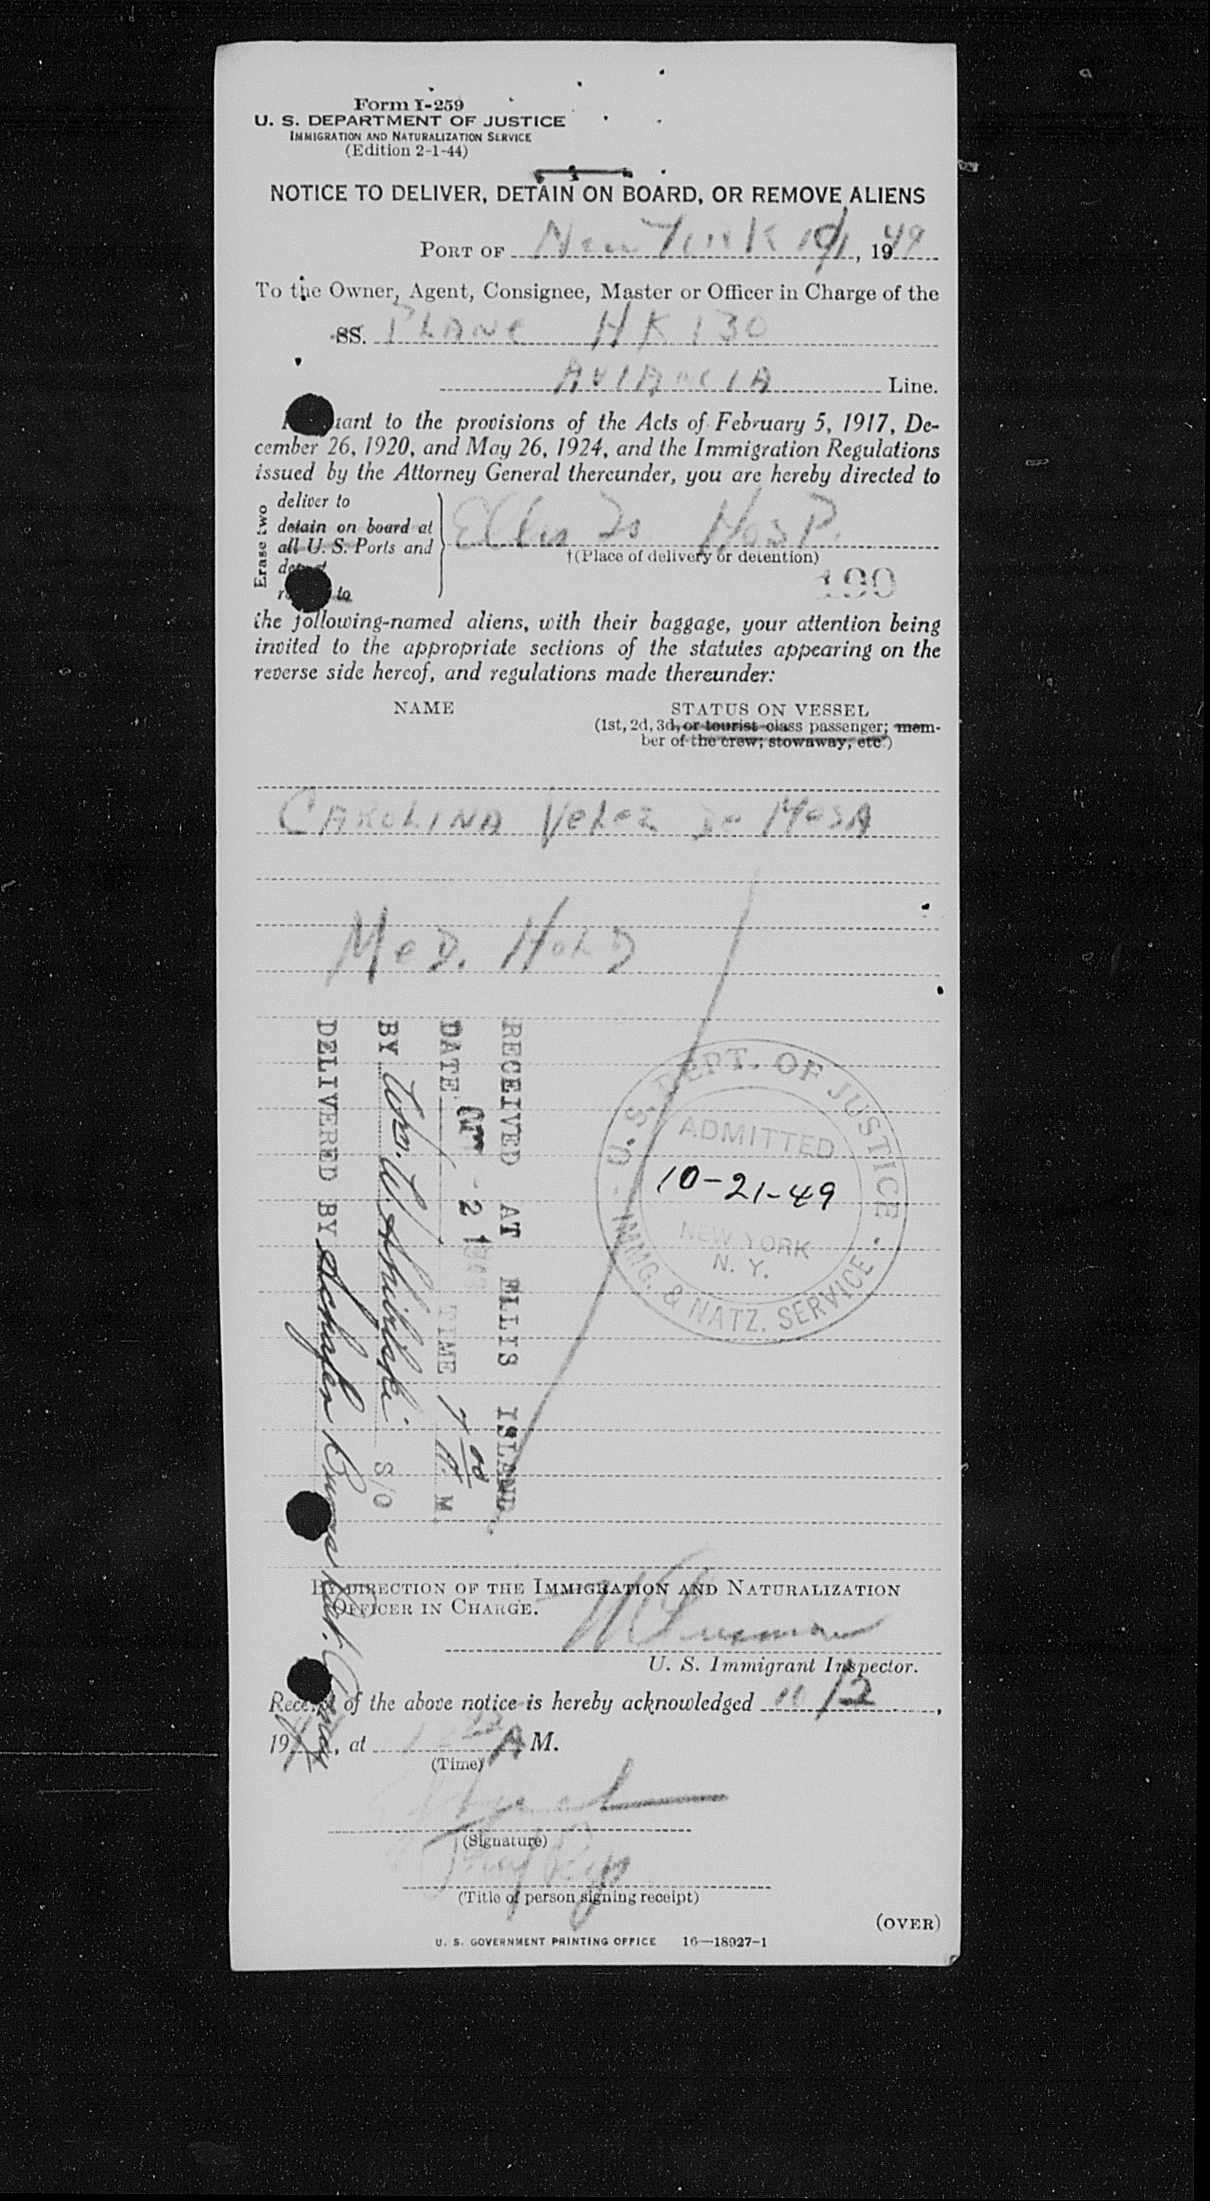 Form I-259
U. S. DEPARTMENT OF JUSTICE
IMMIGRATION AND NATURALIZATION SERVICE
(Edition 2-1-44)
NOTICE TO DELIVER, DETAIN ON BOARD, OR REMOVE ALIENS
PORT OF New York 10/1, 1949
To the Owner, Agent, Consignee, Master or Officer in Charge of the
SS. PLANE HK 130
AVIANCIA Line.
uant to the provisions of the Acts of February 5, 1917, De-
cember 26, 1920, and May 26, 1924, and the Immigration Regulations
issued by the Attorney General thereunder, you are hereby directed to
Erase two
deliver to
detain on board at
all U. S. Ports and
to
Ellis Is HOSP.
†(Place of delivery or detention)
190
the following-named aliens, with their baggage, your attention being
invited to the appropriate sections of the statutes appearing on the
reverse side hereof, and regulations made thereunder:
NAME
STATUS ON VESSEL
(1st, 2d, 3d, or tourist class passenger; mem-
ber of the crew; stowaway, etc.)
CAROLINA VeLez De MesA
MeD. HoLD
RECEIVED AT ELLIS ISLAND
DATE - 2 TIME 1 00 A. M.
BY Wm. W. S/O
DELIVERED BY
U. S. DEPT. OF JUSTICE
ADMITTED
10-21-49
NEW YORK
N. Y.
IMMG. & NATZ. SERVICE
BY DIRECTION OF THE IMMIGRATION AND NATURALIZATION
OFFICER IN CHARGE.
U. S. Immigrant Inspector.
Receipt of the above notice is hereby acknowledged 10/2,
19, at A M.
(Time)
(Signature)
(Title of person signing receipt)
(OVER)
U. S. GOVERNMENT PRINTING OFFICE 16—18927-1